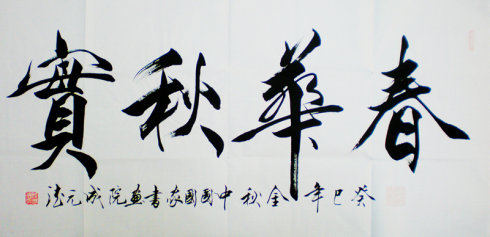 春華秋實
癸巳年金秋中國國家書畫院成元法